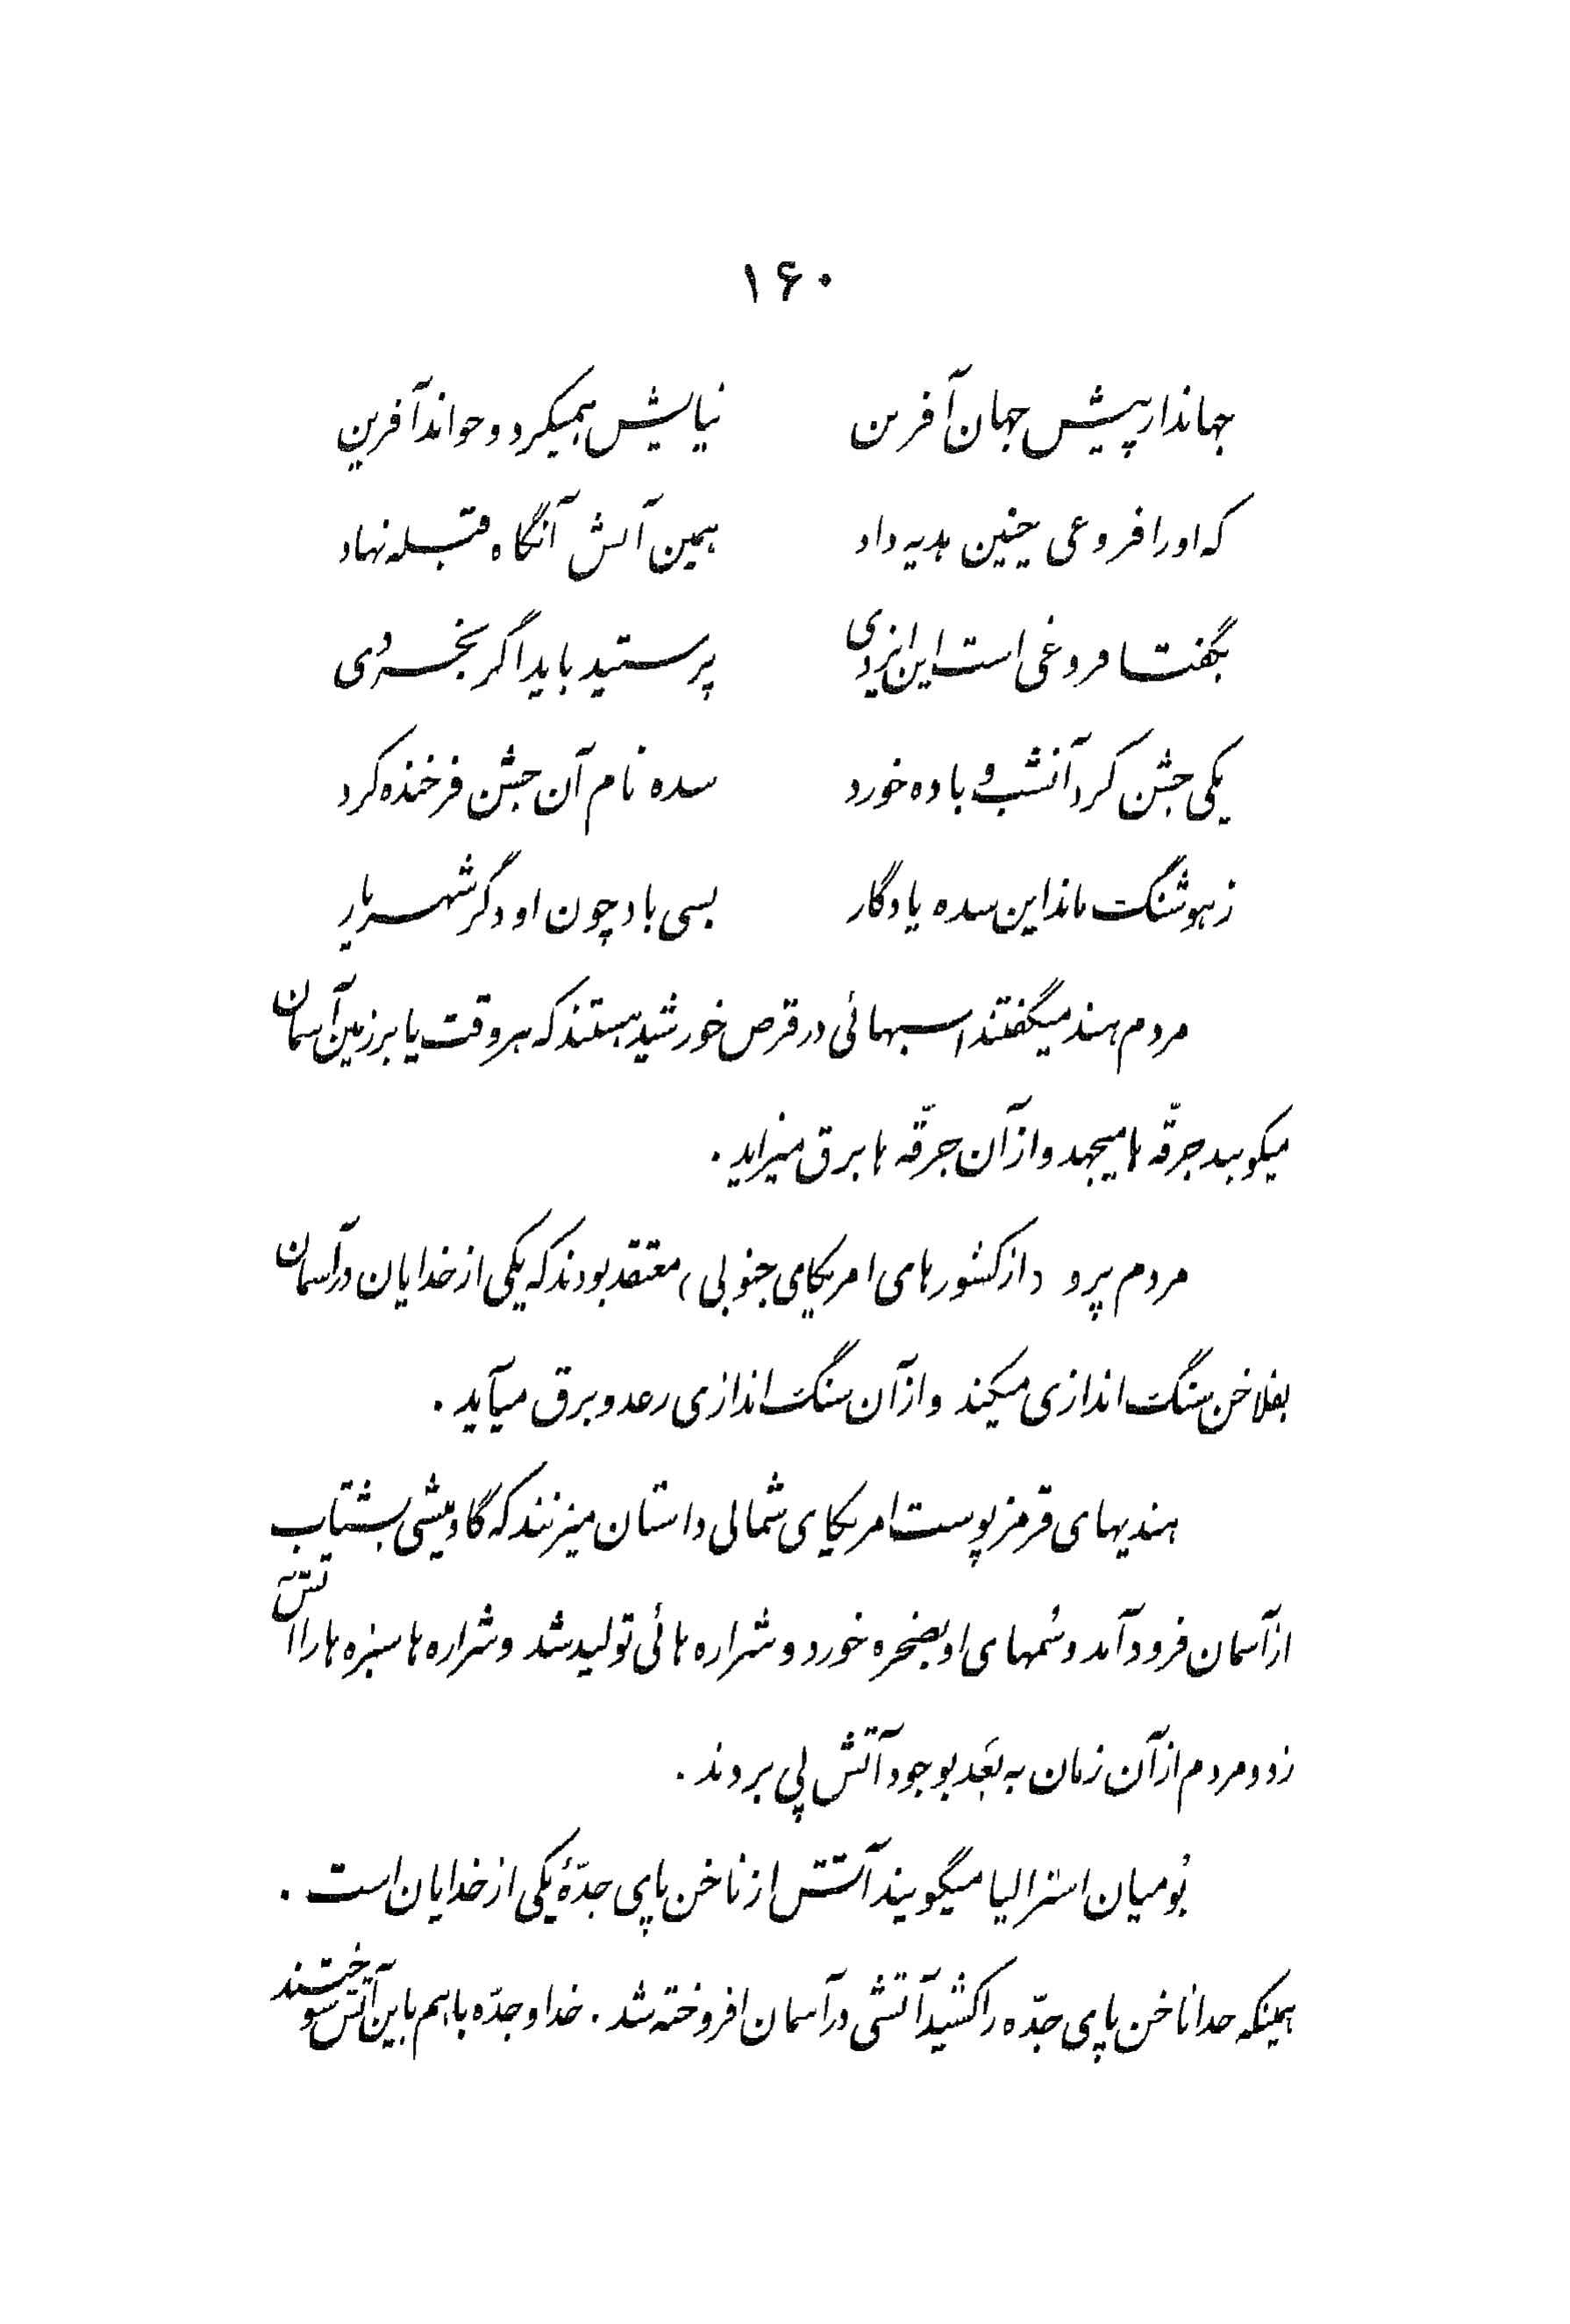 ۱۶۰
جهاندار پیش جهان آفرین نیایش همیکرد و خواند آفرین
که او را فروغی چنین هدیه داد همین آتش آنگاه قبله نهاد
بگفتا فروغی است این ایزدی پرستید باید اگر بخردی
یکی جشن کرد آنشب و باده خورد سده نام آن جشن فرخنده کرد
ز هوشنگ ماند این سده یادگار بسی باد چون او دگر شهریار
مردم هند میگفتند اسبهائی در قرص خورشید هستند که هر وقت پا بر زمین آسمان
میکوبند جرقّه ها میجهد و از آن جرقّه ها برق میزاید .
مردم پرو (از کشورهای امریکای جنوبی) معتقد بودند که یکی از خدایان در آسمان
بفلاخن سنگ اندازی میکند و از آن سنگ اندازی رعد و برق میآید .
هندیهای قرمز پوست امریکای شمالی داستان میزنند که گاومیشی بشتاب
از آسمان فرود آمد و سُمهای او بصخره خورد و شراره هائی تولید شد و شراره ها سبزه ها را آتش
زد و مردم از آن زمان به بَعد بوجود آتش پی بردند .
بُومیان استرالیا میگویند آتش از ناخن پای جدّهٔ یکی از خدایان است .
همینکه خدا ناخن پای جدّه را کشید آتشی در آسمان افروخته شد . خدا و جدّه با هم باین آتش سوختند